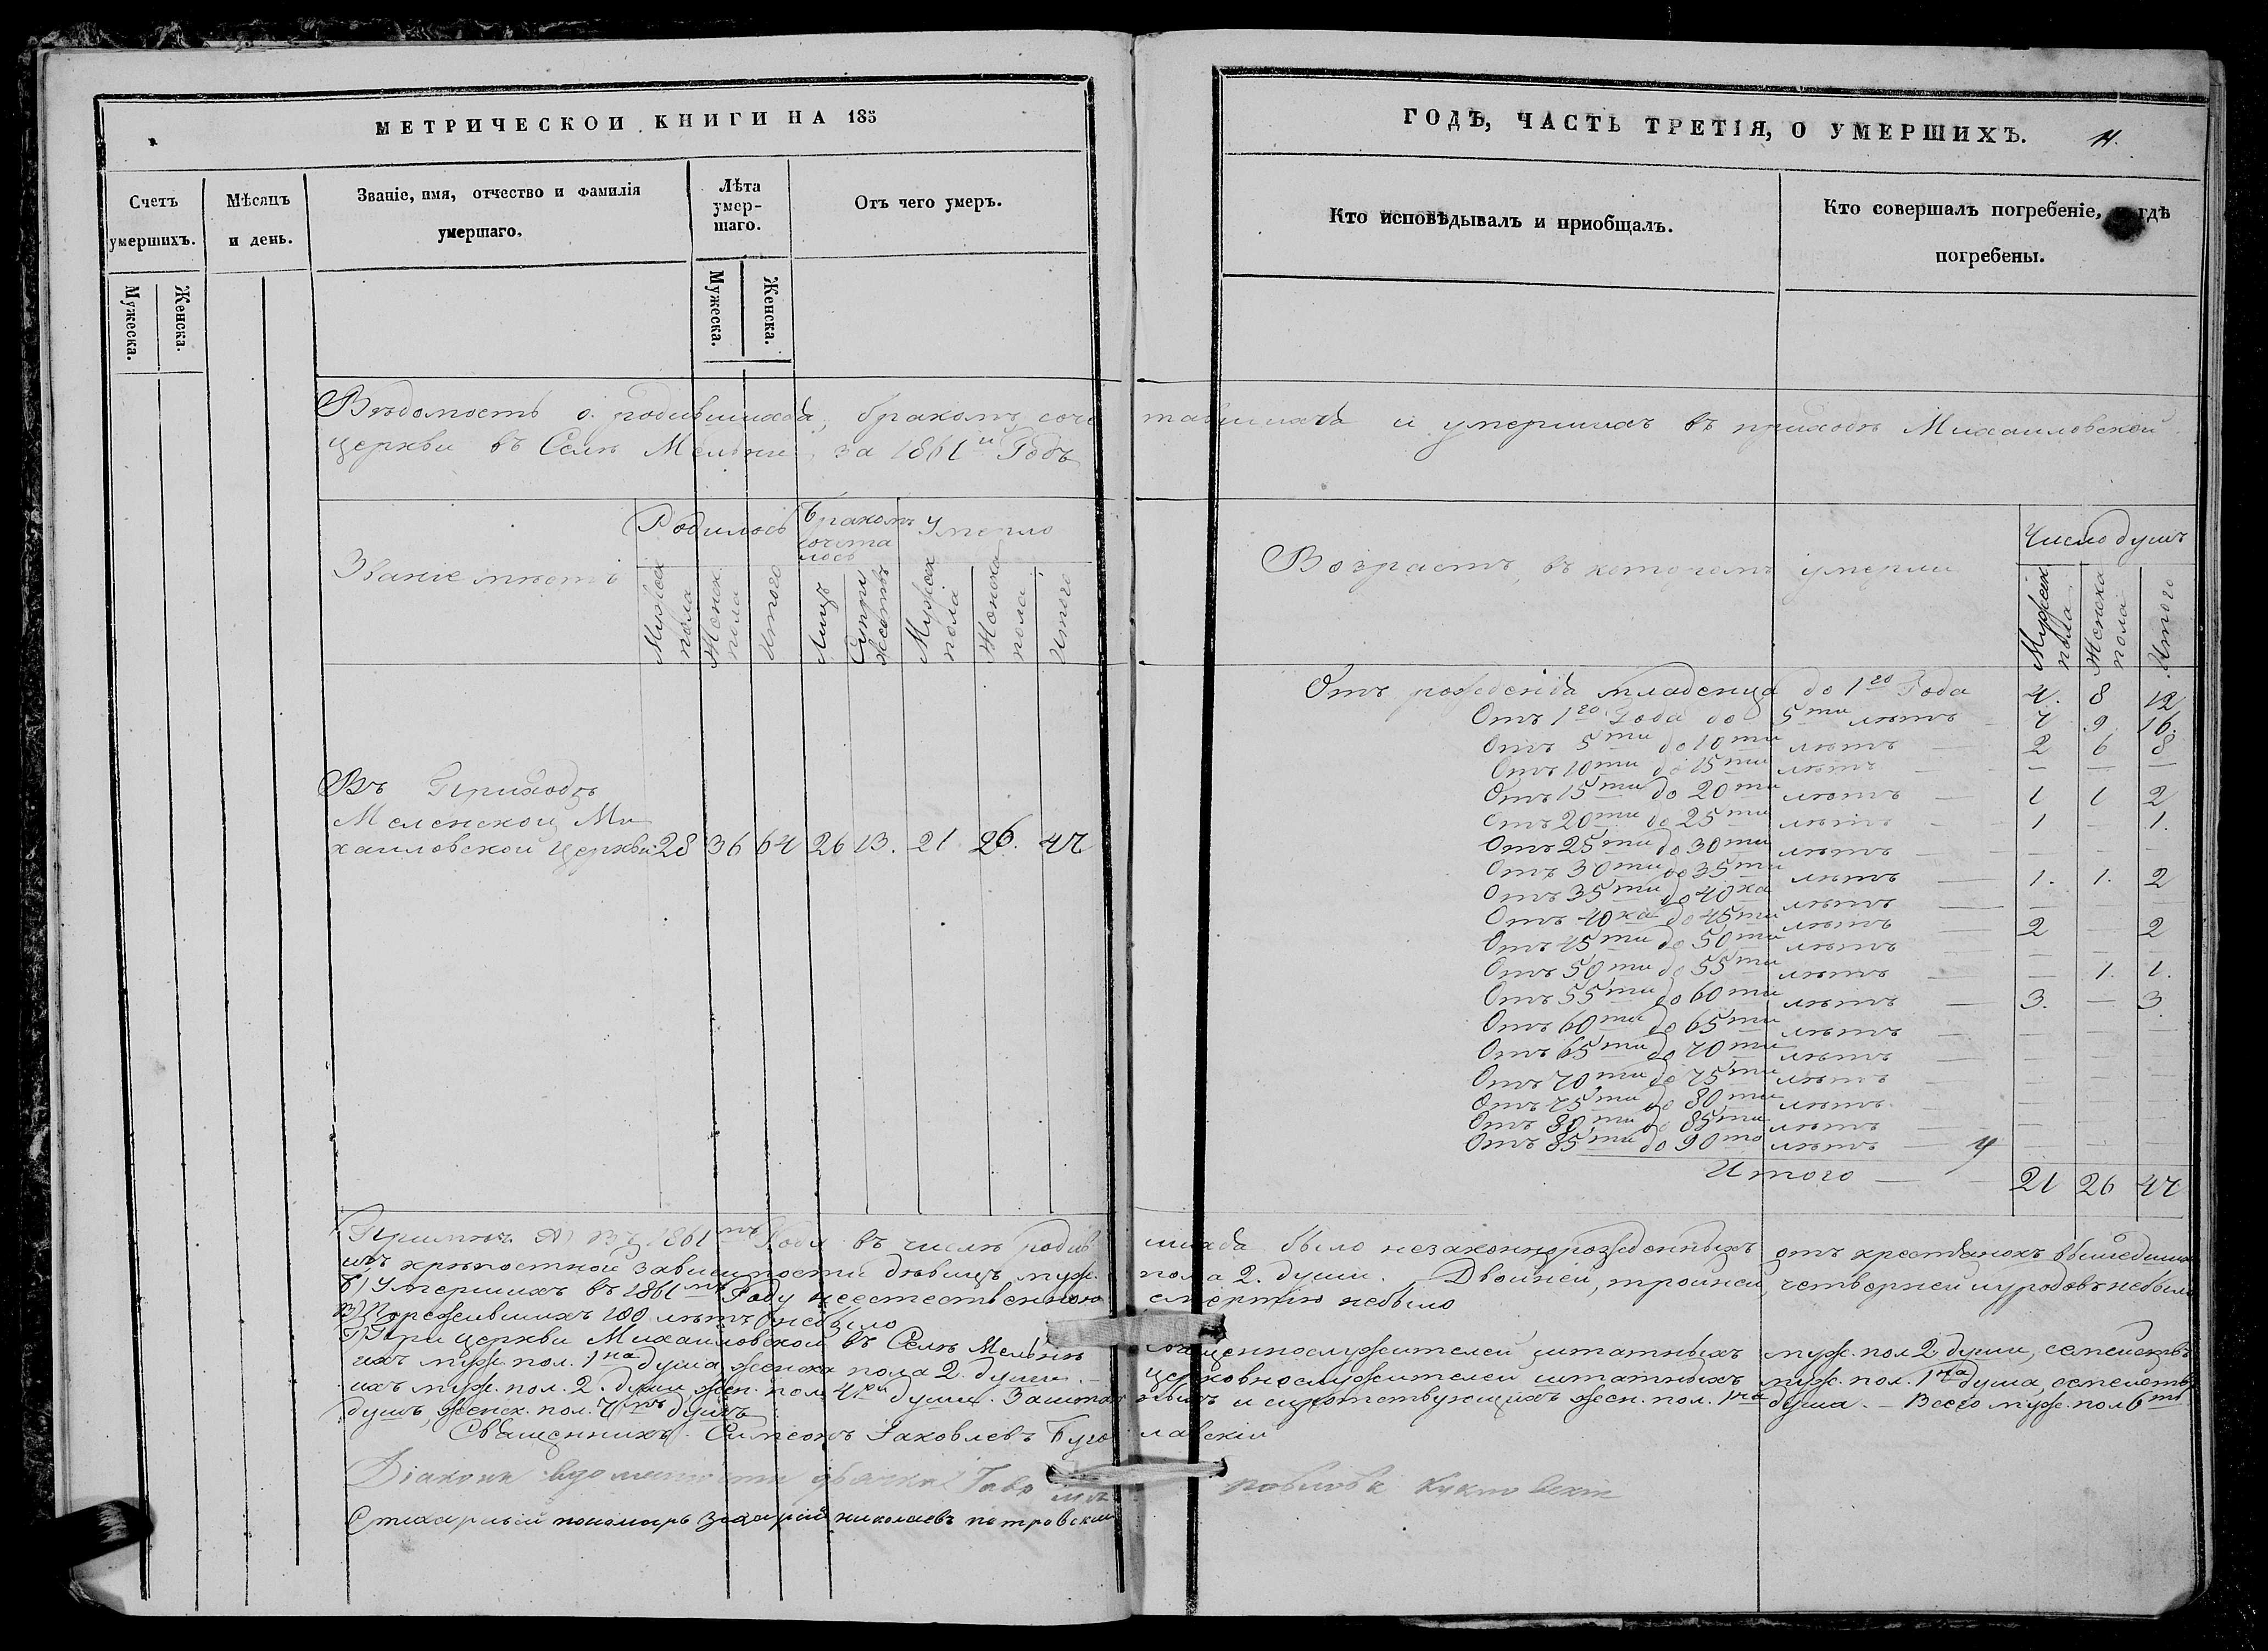 МЕТРИЧЕСКОЙ КНИГИ НА 185
Счетъ умершихъ.
Мужеска.
Женска.
Мѣсяцъ и день.
Званіе, имя, отчество и фамилія умершаго.
Лѣта умер-
шаго.
Мужеска.
Женска.
Отъ чего умеръ.
ГОДЪ, ЧАСТЬ ТРЕТІЯ, О УМЕРШИХЪ.
Кто исповѣдывалъ и приобщалъ.
Кто совершалъ погребеніе, гдѣ
погребены.
Вѣдомость о родившихся, бракомъ соче тавшихся и умершихъ въ приходѣ Михаиловской
церкви въ Селѣ за 1861й Годъ
Званіе мѣстъ
Родилось
Бракомъ сочета
лось
Умерло
Мужеск пола
Женск. пола
Итого
Лицъ
Супру
жествъ
Мужеск пола
Женска пола
Итого
Въ Приходѣ
Меленской Ми
хаиловской Церкви 28 36 64 26 13. 21 26. 47
Возрастъ, въ которомъ умерли
Число душъ
Мужеск пола
Женска пола
Итого
Отъ рожденія младенца до 1го Года 4. 8 12
Отъ 1го Года до 5ти лѣтъ 7 9. 16.
Отъ 5ти до 10ти лѣтъ — 2 6 8
Отъ 10ти до 15ти лѣтъ — — — —
Отъ 15ти до 20ти лѣтъ — 1 1 2
Отъ 20ти до 25ти лѣтъ — 1 — 1.
Отъ 25ти до 30ти лѣтъ — — — —
Отъ 30ти до 35ти лѣтъ — 1. 1. 2
Отъ 35ти до 40ка лѣтъ — — — —
Отъ 40ка до 45ти лѣтъ — 2 — 2
Отъ 45ти до 50ти лѣтъ — — — —
Отъ 50ти до 55ти лѣтъ — — 1. 1.
Отъ 55ти до 60ти лѣтъ — 3. — 3.
Отъ 60ти до 65ти лѣтъ — — — —
Отъ 65ти до 70ти лѣтъ — — — —
Отъ 70ти до 75ти лѣтъ — — — —
Отъ 75ти до 80ти лѣтъ — — — —
Отъ 80ти до 85ти лѣтъ — — — —
Отъ 85ти до 90то лѣтъ — — — —
Итого — 21 26 47
Примѣч. А) Въ 1861мъ Году въ числѣ родив шихся было незаконнорожденныхъ отъ крестьянокъ вышедшихъ
изъ крѣпостной зависимости дѣвицъ муж. пола 2. души. Двойней, тройней, четверней и уродовъ небыло
б) Умершихъ въ 1861мъ Году неестественною смертію небыло
в) Пережившихъ 100 лѣтъ небыло
г) При церкви Михаиловской въ Селѣ священнослужителей штатныхъ муж. пол 2 души, семействъ
ихъ муж. пол. 1на душа, женска пола 2. души. — церковнослужителей штатныхъ муж. пол. 1на душа, семействъ
ихъ муж. пол. 2. души, жен. пол. 4ре души. Заштат ныхъ и сиротствующихъ жен. пол. 1на душа. — Всего муж. пол 6ть
душъ, женск. пол. 7мь душъ
Священникъ Симеонъ Іаковлевъ
Діаконъ
Стихарный пономарь Захарій николаевъ петровскій